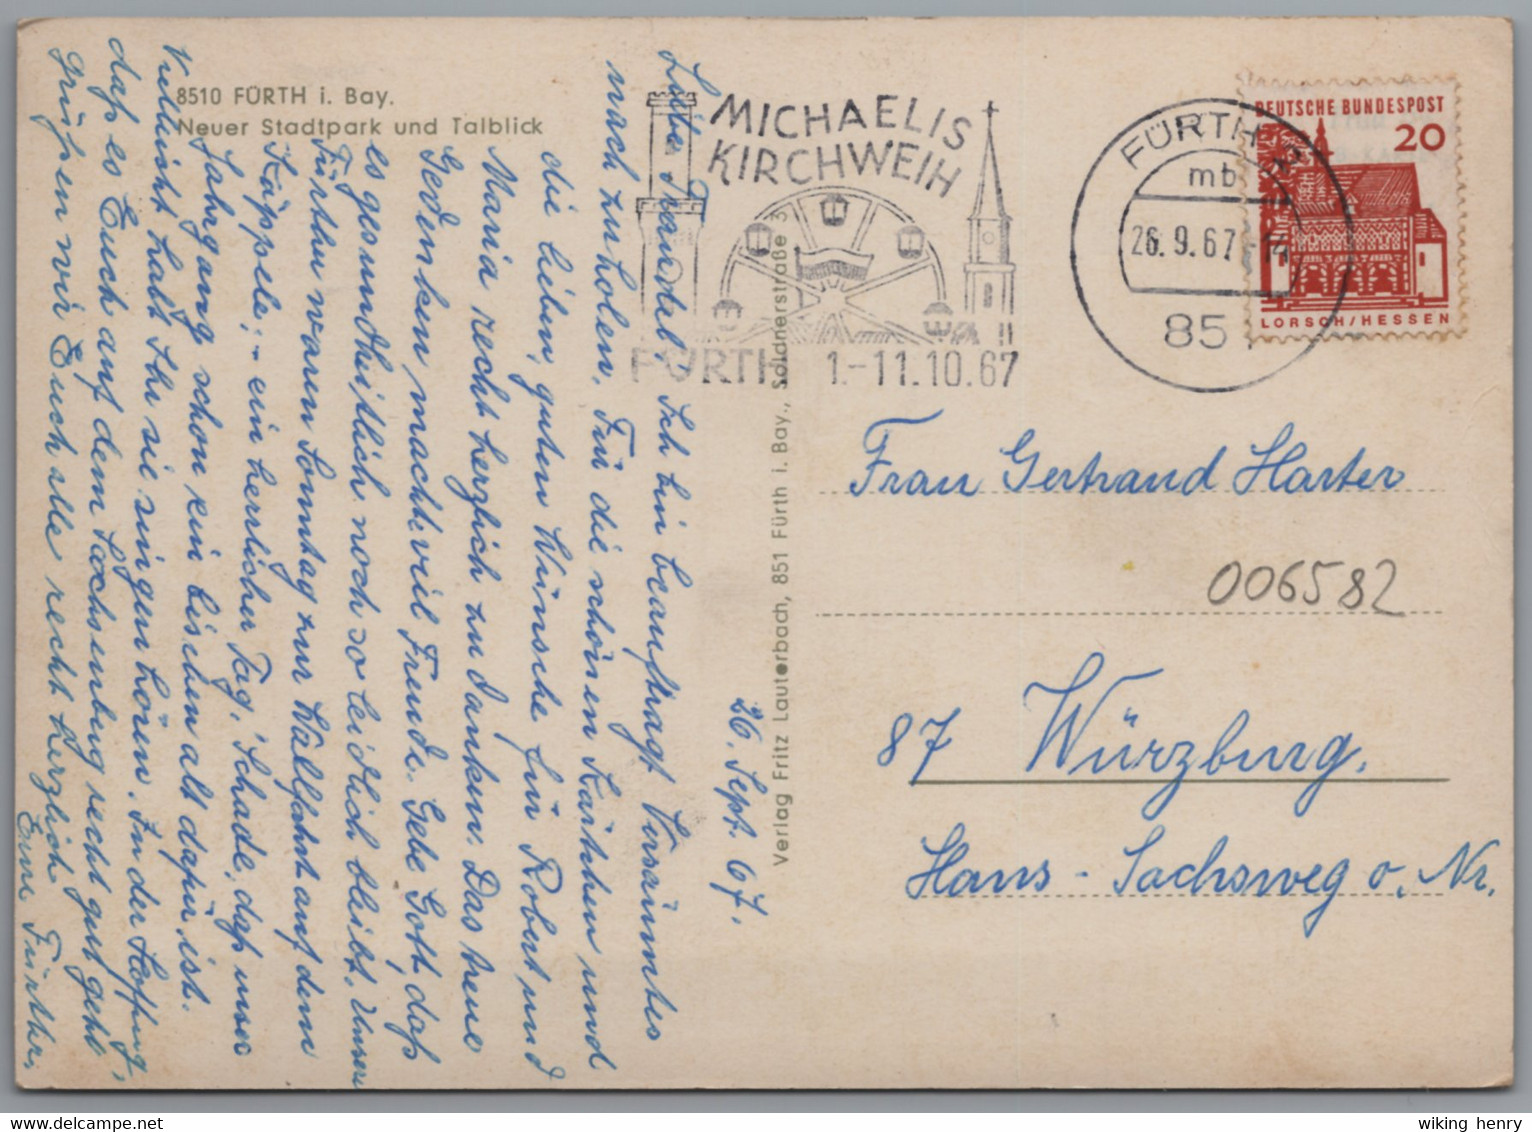 8510 FÜRTH i. Bay.
Neuer Stadtpark und Talblick
MICHAELIS
KIRCHWEIH
FÜRTH 1.-11.10.67
FÜRTH
mb
26.9.67-14
85
DEUTSCHE BUNDESPOST
20
LORSCH/HESSEN
Verlag Fritz Lauterbach, 851 Fürth i. Bay., Soldnerstraße 3
26. Sept. 67.
Liebe Traudel! Ich bin beauftragt Versäumtes
nach zu holen. Für die schönen Kärtchen und
die lieben, guten Wünsche für Robert und
Maria recht herzlich zu danken. Das treue
Gedenken macht viel Freude. Gebe Gott, daß
es gesundheitlich noch so leidlich bleibt. Unsere
Fürther waren Sonntag zur Wallfahrt auf dem
Käppele; - ein herrlicher Tag. Schade, daß unser
Jahrgang schon ein bischen alt dafür ist.
Vielleicht habt Ihr sie singen hören. In der Hoffnung,
daß es Euch auf dem Sachsenberg recht gut geht
grüßen wir Euch alle recht herzlich
Eure Fürther.
Frau Gertraud Harter
006582
87 Würzburg.
Hans-Sachsweg o. Nr.
wiking henry